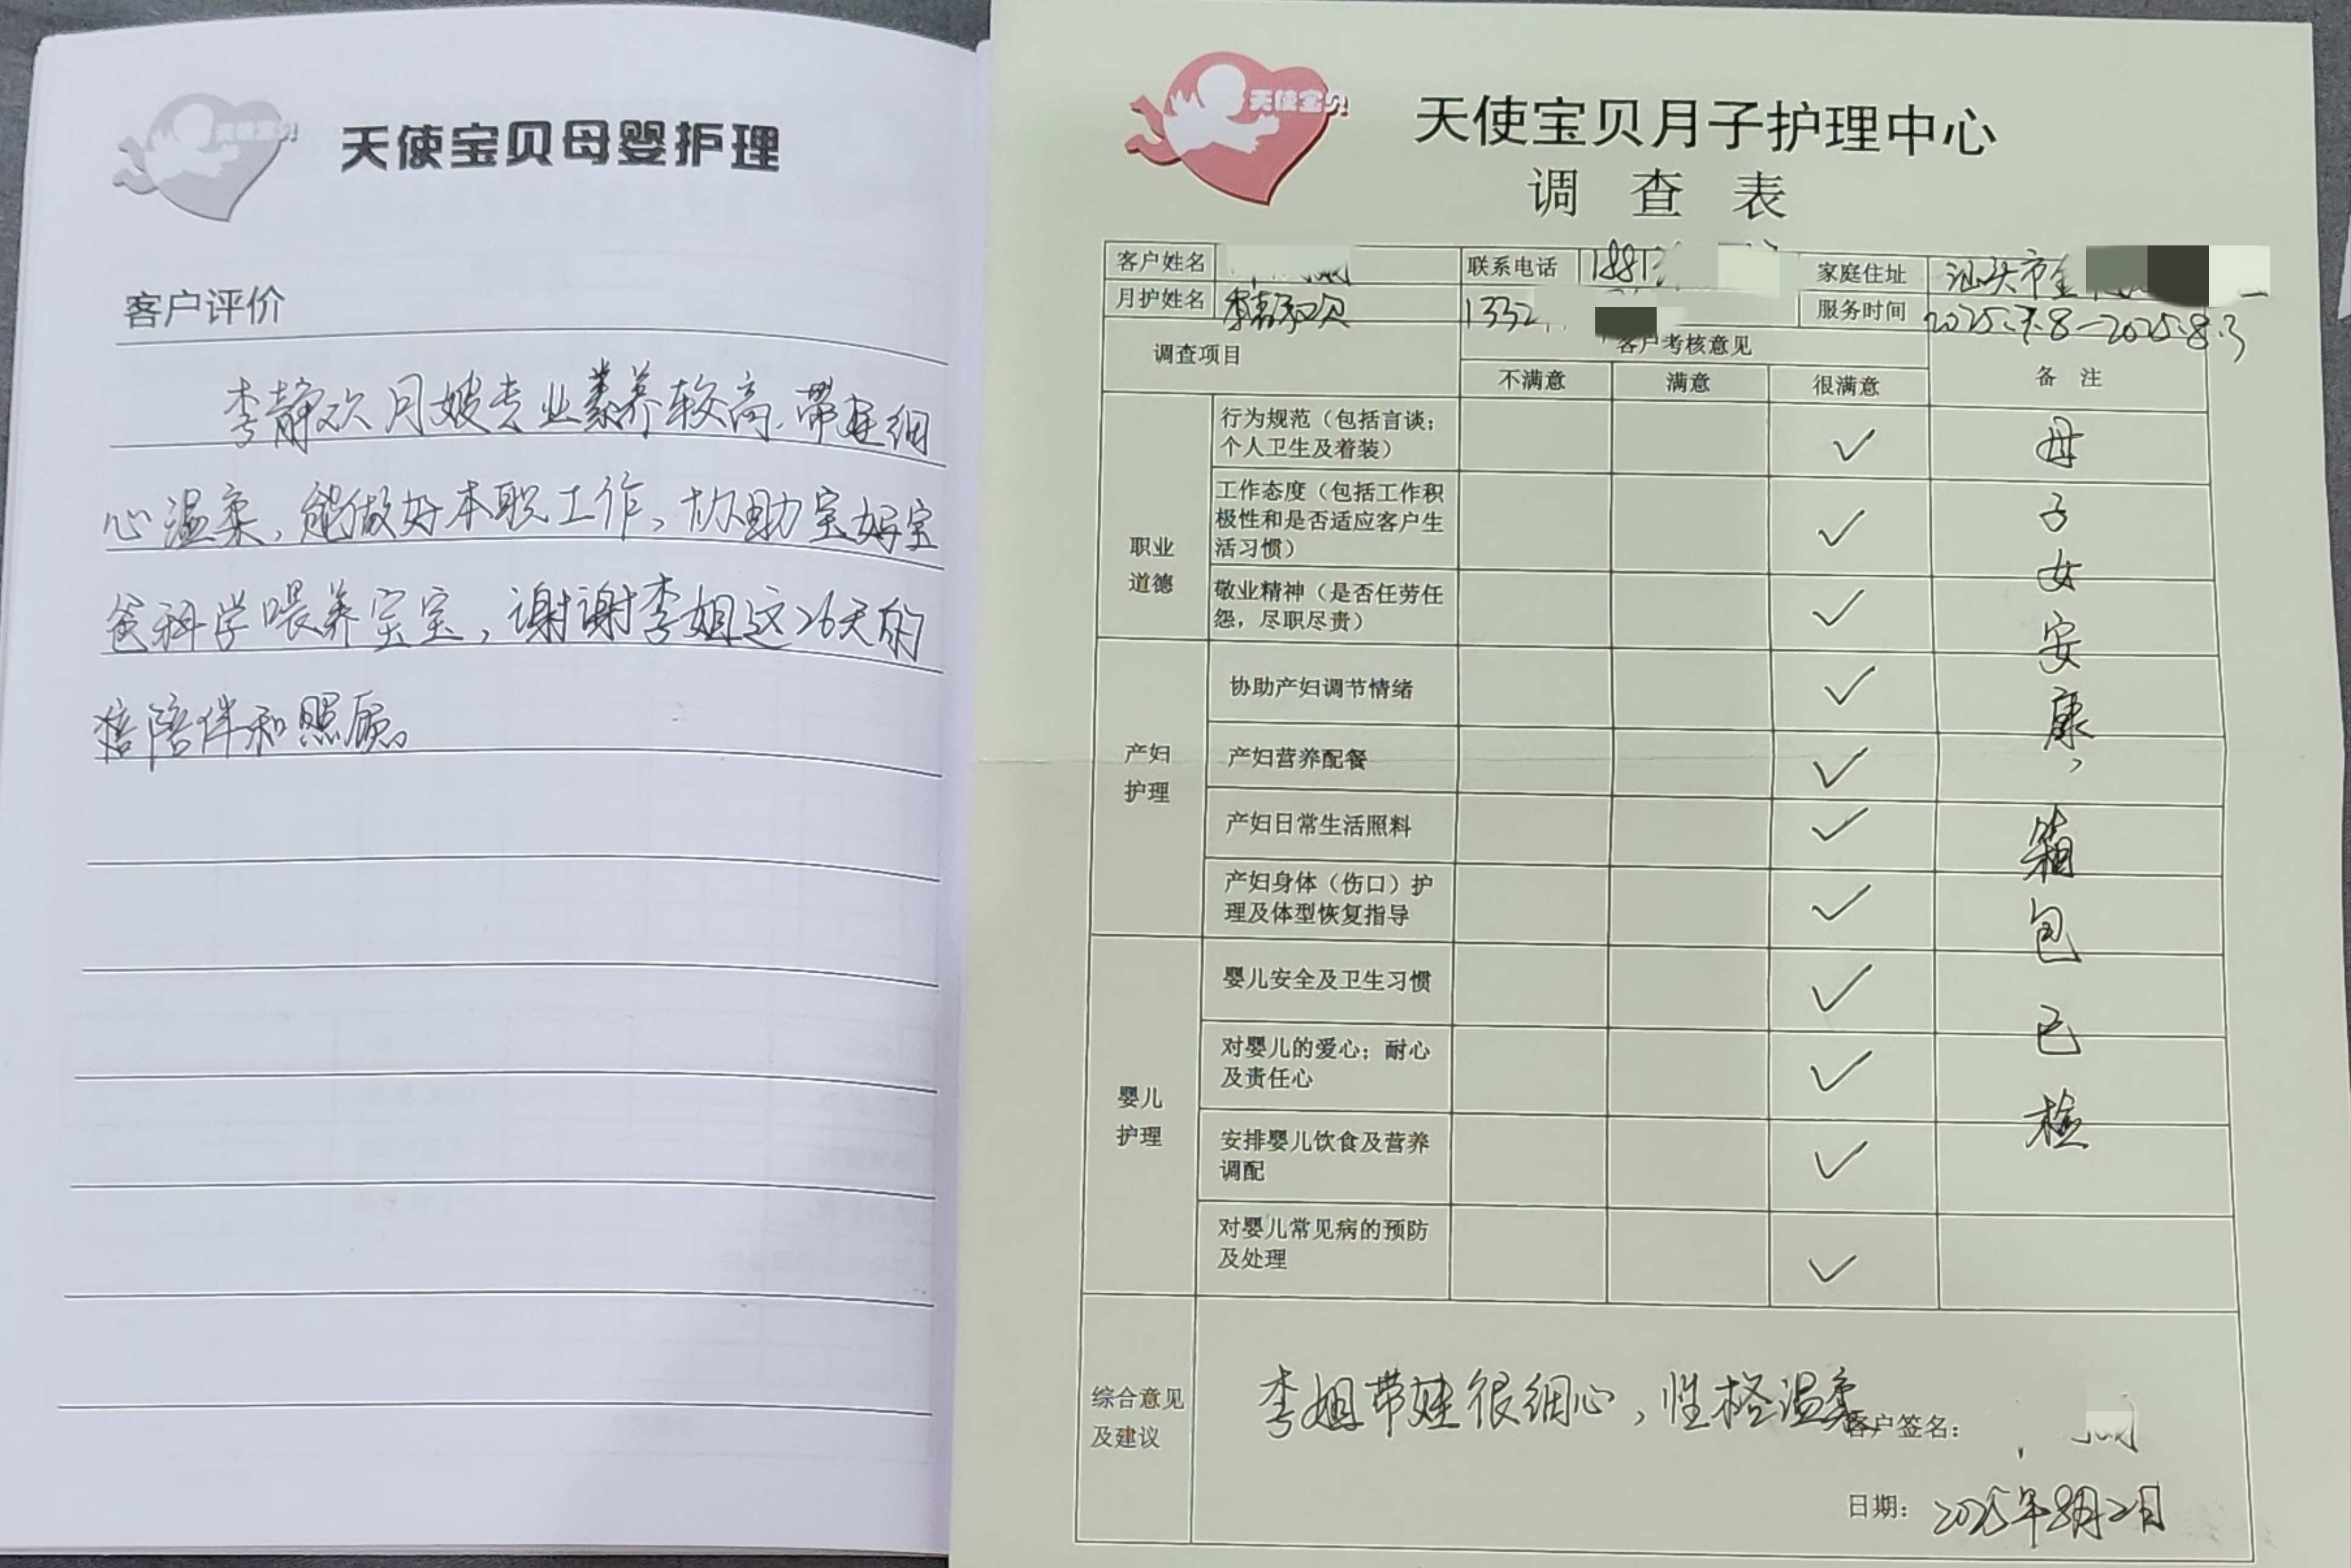 天使宝贝
天使宝贝母婴护理
客户评价
李静欢月嫂专业素养较高,带娃细
心温柔,能做好本职工作,协助宝妈宝
爸科学喂养宝宝,谢谢李姐这26天的
陪伴和照顾。
天使宝贝
天使宝贝月子护理中心
调查表
客户姓名 联系电话 家庭住址 汕头市金
月护姓名 李静欢 1332 服务时间 2025.7.8—2025.8.3
调查项目 客户考核意见 备注
不满意 满意 很满意
职业道德
行为规范（包括言谈;
个人卫生及着装） ✓
工作态度（包括工作积
极性和是否适应客户生
活习惯） ✓
敬业精神（是否任劳任
怨，尽职尽责） ✓
产妇护理
协助产妇调节情绪 ✓
产妇营养配餐 ✓
产妇日常生活照料 ✓
产妇身体（伤口）护
理及体型恢复指导 ✓
婴儿护理
婴儿安全及卫生习惯 ✓
对婴儿的爱心；耐心
及责任心 ✓
安排婴儿饮食及营养
调配 ✓
对婴儿常见病的预防
及处理 ✓
母子女安康，箱包已检
综合意见
及建议
李姐带娃很细心，性格温柔
客户签名：
日期：2025年8月2日